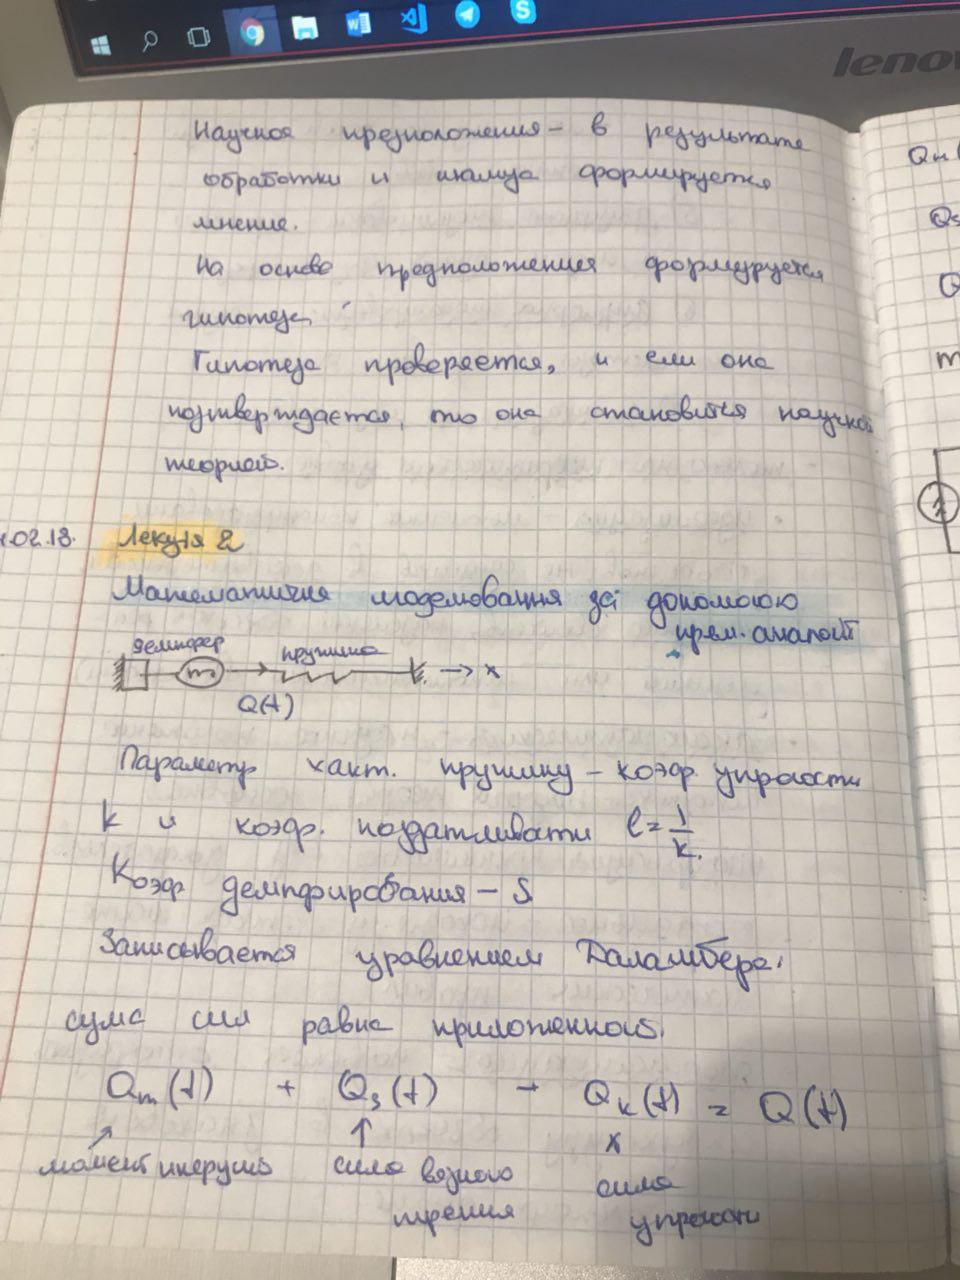 lenovo
Научное предположения – в результате
обработки и анализа формируется
мнение.
На основе предположения формируется
гипотеза,
Гипотеза проверяется, и если она
подтверждается, то она становится научной
теорией.
.02.18. Лекція 2
Математичне моделювання за допомогою
прям. аналогій
демпфер
пружина
m → x
Q(t)
Параметр хакт. пружину – коэф. упругости
k и коэф. податливости l = 1/k.
Коэф демпфирования – S
Записывается уравнением Даламбера:
сума сил равна приложенной.
Qm(t) + Qs(t) + Qk(t) = Q(t)
момент инерции сила вязкого сила
трения упругости
Qm(
Qs
Q
m